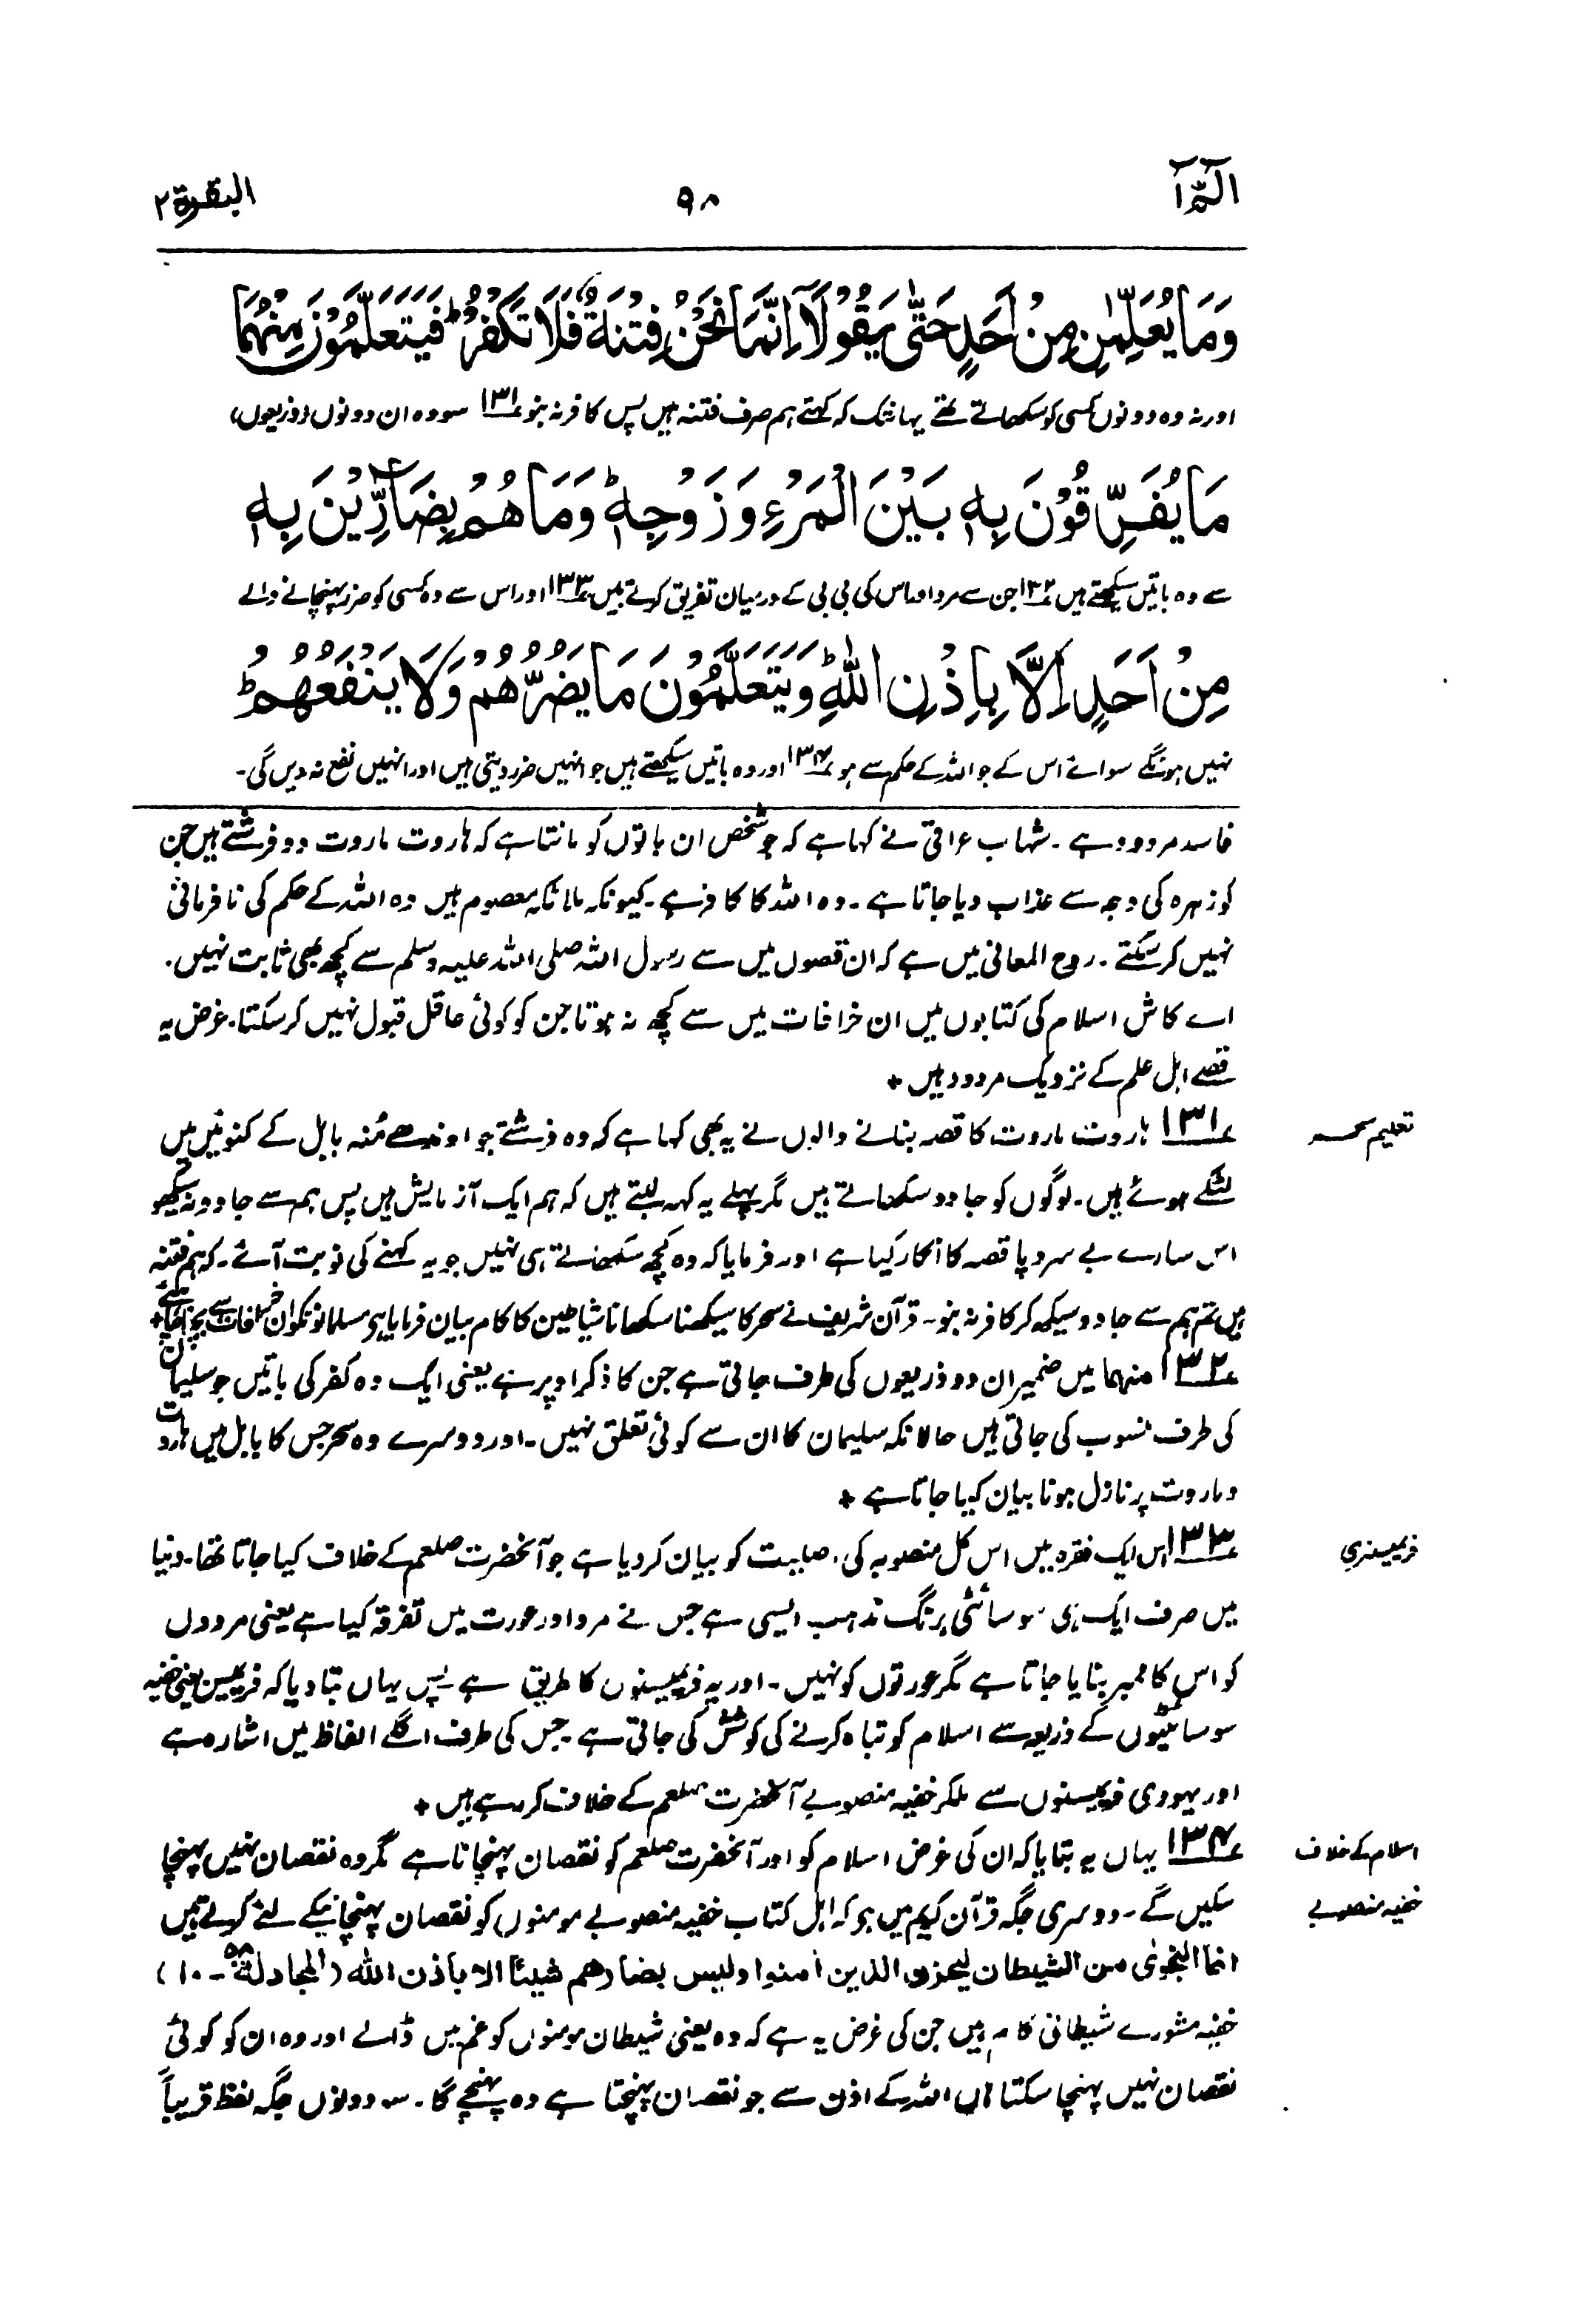 الٓمّٓ ١
٩٨
البقرة ٢
وَمَا يُعَلِّمٰنِ مِنْ اَحَدٍ حَتّٰى يَقُوْلَآ اِنَّمَا نَحْنُ فِتْنَةٌ فَلَا تَكْفُرْ ؕ فَيَتَعَلَّمُوْنَ مِنْهُمَا
اور نہ وہ دونوں کسی کو سکھاتے تھے یہانتک کہ کہتے ہم صرف فتنہ ہیں پس کافر نہ بنو ۱۳۱ سو وہ ان دونوں (ذریعوں)
مَا يُفَرِّقُوْنَ بِهٖ بَيْنَ الْمَرْءِ وَ زَوْجِهٖ ؕ وَمَا هُمْ بِضَآرِّيْنَ بِهٖ
سے وہ باتیں سیکھتے ہیں ۱۳۲ جن سے مرد اور اس کی بی بی کے درمیان تفریق کرتے ہیں ۱۳۳ اور اس سے وہ کسی کو ضرر پہنچانے والے
مِنْ اَحَدٍ اِلَّا بِاِذْنِ اللّٰهِ ؕ وَيَتَعَلَّمُوْنَ مَا يَضُرُّهُمْ وَلَا يَنْفَعُهُمْ ؕ
نہیں ہونگے سوائے اس کے جو اللہ کے حکم سے ہو ۱۳۴ اور وہ باتیں سیکھتے ہیں جو انہیں ضرر دیتی ہیں اور انہیں نفع نہ دیں گی۔
فاسد مردود ہے۔ شہاب عراقی نے کہا ہے کہ جو شخص ان باتوں کو مانتا ہے کہ ہاروت ماروت دو فرشتے ہیں جن
کو زہرہ کی وجہ سے عذاب دیا جاتا ہے۔ وہ اللہ کا کافر ہے۔ کیونکہ ملائکہ معصوم ہیں وہ اللہ کے حکم کی نافرمانی
نہیں کر سکتے۔ روح المعانی میں ہے کہ ان قصوں میں سے رسول اللہ صلی اللہ علیہ وسلم سے کچھ بھی ثابت نہیں۔
اے کاش اسلام کی کتابوں میں ان خرافات میں سے کچھ نہ ہوتا جن کو کوئی عاقل قبول نہیں کر سکتا۔ غرض یہ
قصے اہل علم کے نزدیک مردود ہیں +
تعلیم سحر
۱۳۱ ہاروت ماروت کا قصہ بنانے والوں نے یہ بھی کہا ہے کہ وہ فرشتے جو اوندھے مُنہ بابل کے کنوئیں میں
لٹکے ہوئے ہیں۔ لوگوں کو جادو سکھاتے ہیں مگر پہلے یہ کہہ لیتے ہیں کہ ہم ایک آزمایش ہیں پس ہم سے جادو نہ سیکھو
اس سارے بے سروپا قصہ کا انکار کیا ہے اور فرمایا کہ وہ کچھ سکھاتے ہی نہیں جو یہ کہنے کی نوبت آئے۔ کہ ہم فتنہ
ہیں تم ہم سے جادو سیکھ کر کافر نہ بنو۔ قرآن شریف نے سحر کا سیکھنا سکھانا شیاطین کا کام بیان فرمایا ہے مسلمانوں کو ان خرافات سے بچنا چاہئے +
۱۳۲ منہما میں ضمیر ان دو ذریعوں کی طرف جاتی ہے جن کا ذکر اوپر ہے یعنی ایک وہ کفر کی باتیں جو سلیمان
کی طرف منسوب کی جاتی ہیں حالانکہ سلیمان کا ان سے کوئی تعلق نہیں۔ اور دوسرے وہ سحر جس کا بابل میں ہاروت
و ماروت پر نازل ہونا بیان کیا جاتا ہے +
فریمیسنری
۱۳۳ اس ایک فقرہ میں اس کل منصوبہ کی اصلیت کو بیان کر دیا ہے جو آنحضرت صلعم کے خلاف کیا جاتا تھا۔ دنیا
میں صرف ایک ہی سوسائٹی برنگ مذہب ایسی ہے جس نے مرد اور عورت میں تفرقہ کیا ہے یعنی مردوں
کو اس کا ممبر بنایا جاتا ہے مگر عورتوں کو نہیں۔ اور یہ فریمیسنوں کا طریق ہے پس یہاں بتا دیا کہ فریمیسن یعنی خفیہ
سوسائٹیوں کے ذریعہ سے اسلام کو تباہ کرنے کی کوشش کی جاتی ہے۔ جس کی طرف اگلے الفاظ میں اشارہ ہے
اور یہودی فریمیسنوں سے ملکر خفیہ منصوبے آنحضرت صلعم کے خلاف کر رہے ہیں +
اسلام کے خلاف
خفیہ منصوبے
۱۳۴ یہاں یہ بتایا کہ ان کی غرض اسلام کو اور آنحضرت صلعم کو نقصان پہنچانا ہے مگر وہ نقصان نہیں پہنچا
سکیں گے۔ دوسری جگہ قرآن کریم میں ہے کہ اہل کتاب خفیہ منصوبے مومنوں کو نقصان پہنچانیکے لئے کرتے ہیں
انما النجوٰی من الشیطان لیحزن الذین اٰمنوا ولیس بضارھم شیئا الا باذن اللہ (المجادلة ۵۸ - ۱۰)
خفیہ مشورے شیطانی کام ہیں جن کی غرض یہ ہے کہ وہ یعنی شیطان مومنوں کو غم میں ڈالے اور وہ ان کو کوئی
نقصان نہیں پہنچا سکتا ہاں اللہ کے اذن سے جو نقصان پہنچتا ہے وہ پہنچے گا۔ دونوں جگہ لفظ قریباً